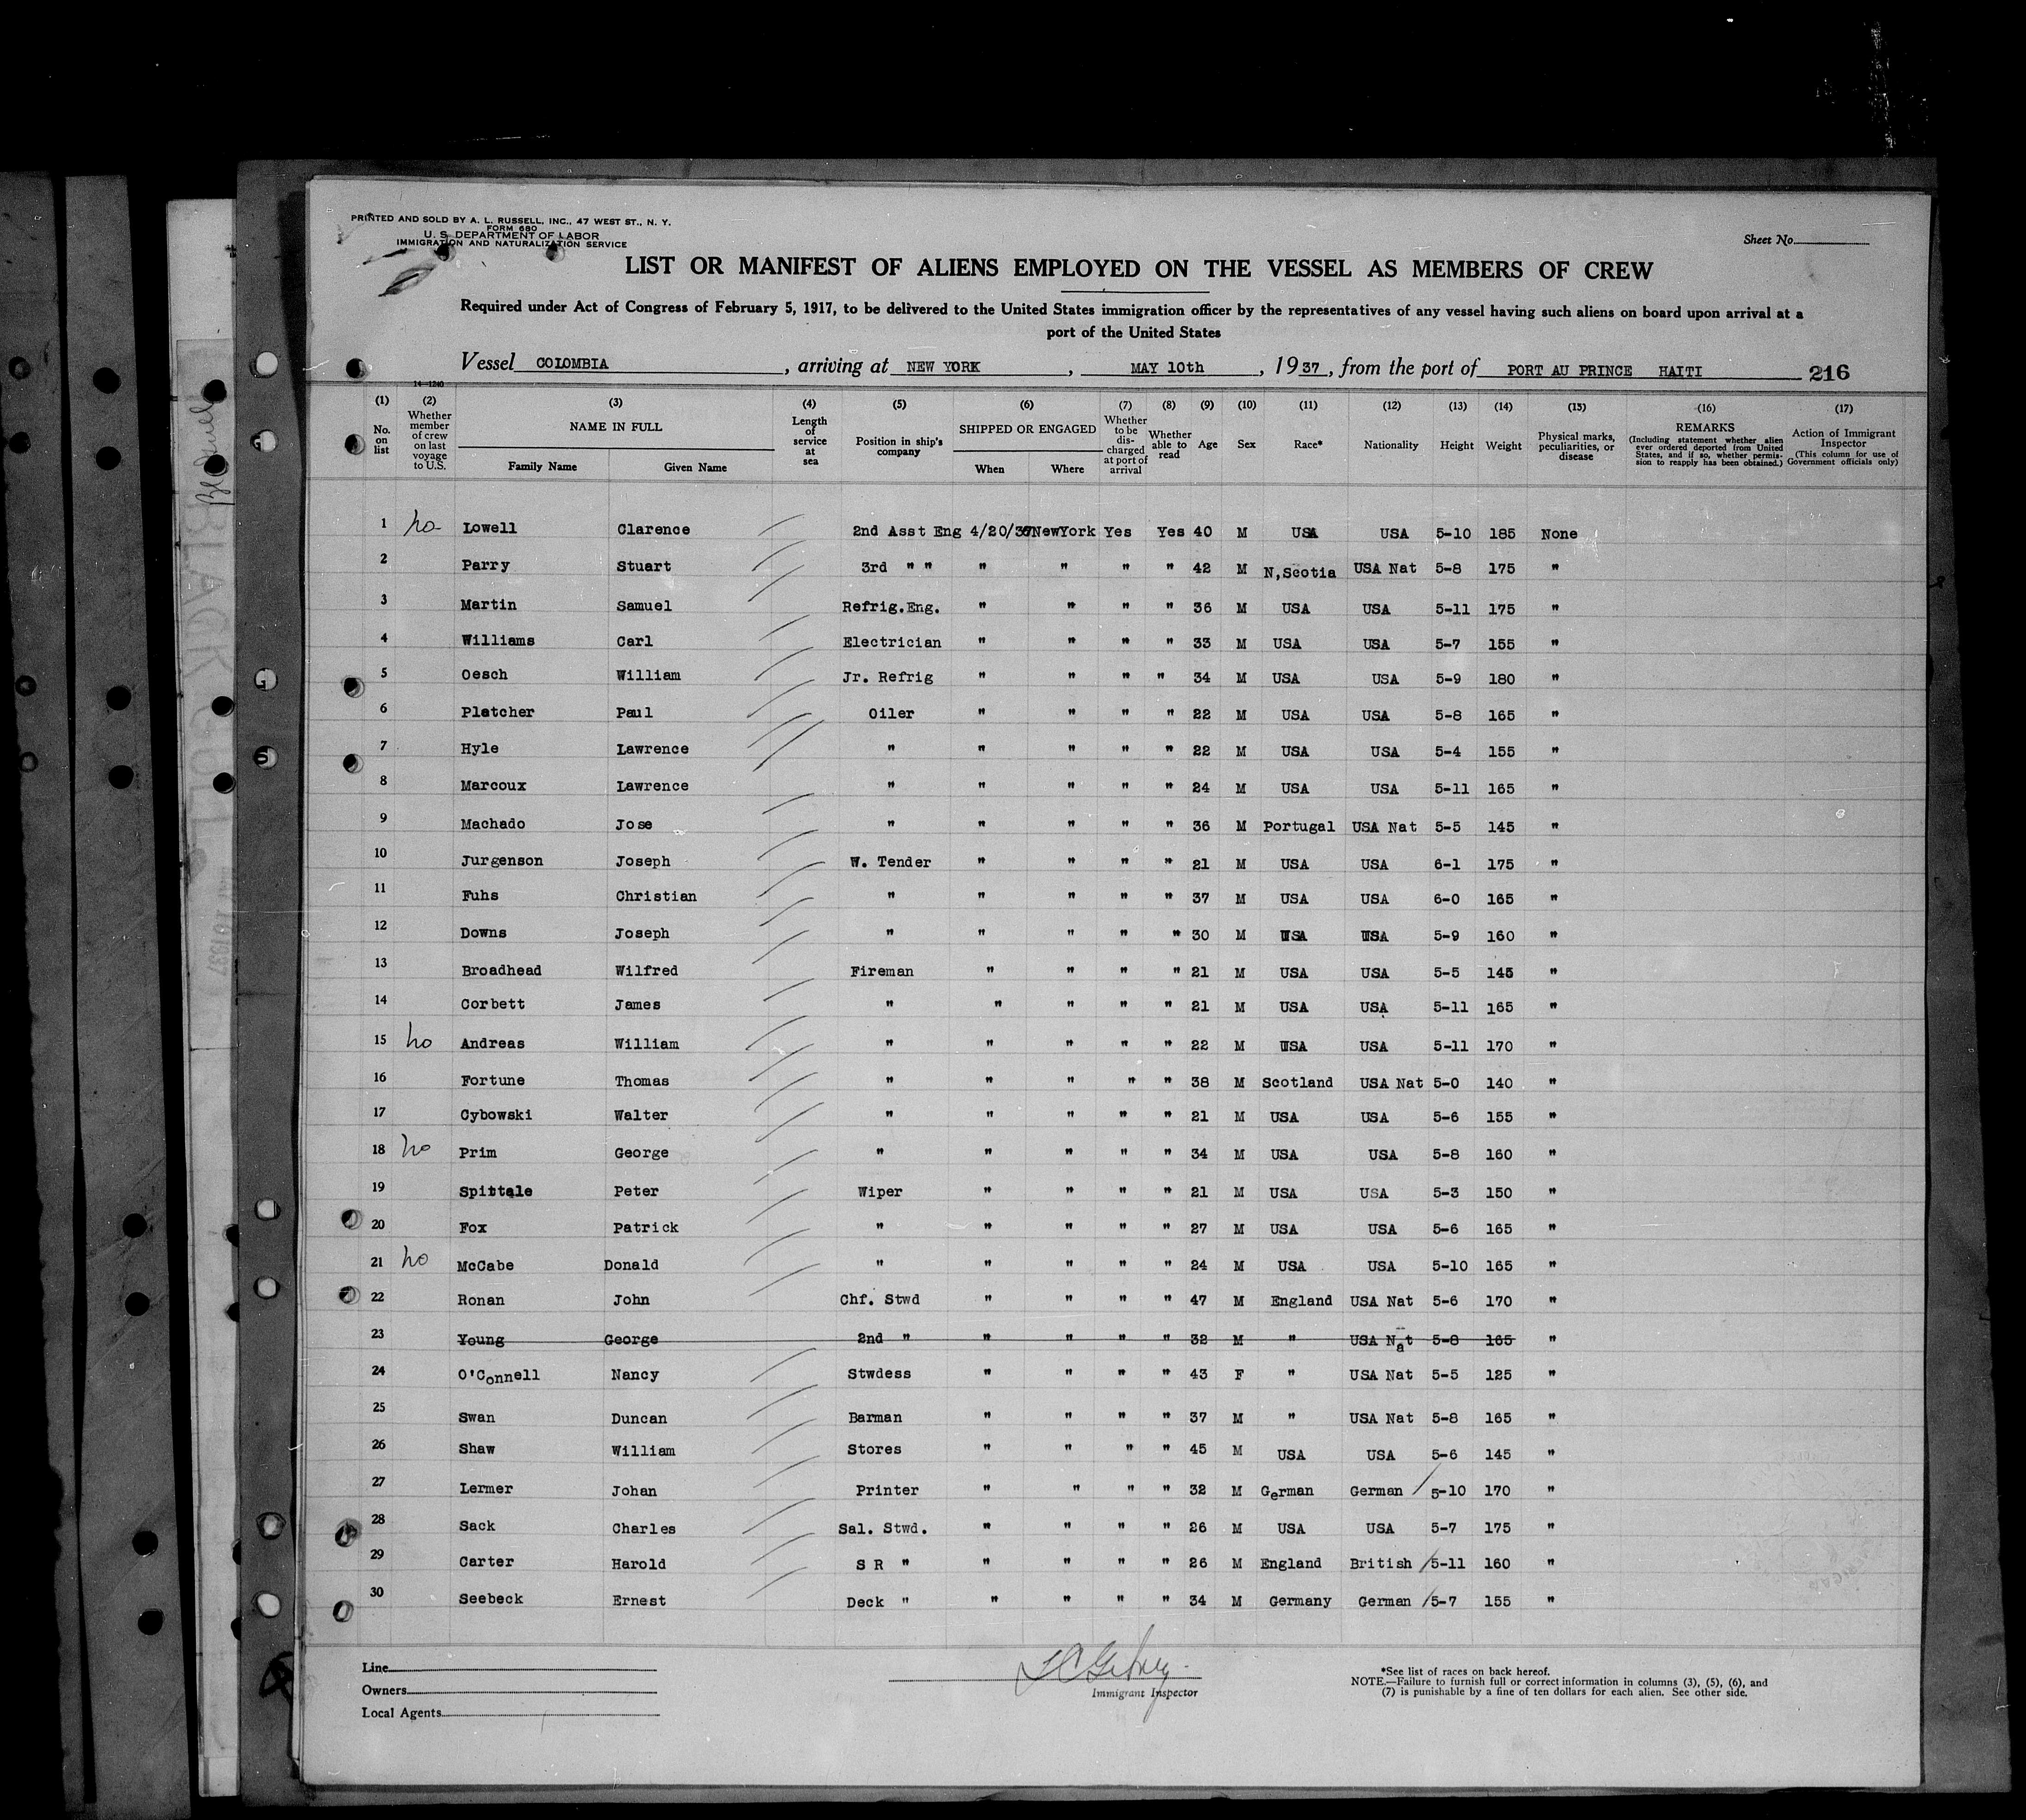 PRINTED AND SOLD BY A. L. RUSSELL, INC., 47 WEST ST., N. Y.
FORM 680
U. S. DEPARTMENT OF LABOR
IMMIGRATION AND NATURALIZATION SERVICE
Sheet No.
LIST OR MANIFEST OF ALIENS EMPLOYED ON THE VESSEL AS MEMBERS OF CREW
Required under Act of Congress of February 5, 1917, to be delivered to the United States immigration officer by the representatives of any vessel having such aliens on board upon arrival at a
port of the United States
Vessel COLOMBIA, arriving at NEW YORK, MAY 10th, 1937, from the port of PORT AU PRINCE HAITI 216
14-1240
(1) No. on list (2) Whether member of crew on last voyage to U.S. (3) NAME IN FULL Family Name Given Name (4) Length of service at sea (5) Position in ship's company (6) SHIPPED OR ENGAGED When Where (7) Whether to be discharged at port of arrival (8) Whether able to read (9) Age (10) Sex (11) Race* (12) Nationality (13) Height (14) Weight (15) Physical marks, peculiarities, or disease (16) REMARKS (Including statement whether alien ever ordered deported from United States, and if so, whether permission to reapply has been obtained.) (17) Action of Immigrant Inspector (This column for use of Government officials only)
1 no Lowell Clarence 2nd Asst Eng 4/20/37 NewYork Yes Yes 40 M USA USA 5-10 185 None
2 Parry Stuart 3rd " " " " " " 42 M N,Scotia USA Nat 5-8 175 "
3 Martin Samuel Refrig.Eng. " " " " 36 M USA USA 5-11 175 "
4 Williams Carl Electrician " " " " 33 M USA USA 5-7 155 "
5 Oesch William Jr. Refrig " " " " 34 M USA USA 5-9 180 "
6 Pletcher Paul Oiler " " " " 22 M USA USA 5-8 165 "
7 Hyle Lawrence " " " " " 22 M USA USA 5-4 155 "
8 Marcoux Lawrence " " " " " 24 M USA USA 5-11 165 "
9 Machado Jose " " " " " 36 M Portugal USA Nat 5-5 145 "
10 Jurgenson Joseph W. Tender " " " " 21 M USA USA 6-1 175 "
11 Fuhs Christian " " " " " 37 M USA USA 6-0 165 "
12 Downs Joseph " " " " " 30 M USA USA 5-9 160 "
13 Broadhead Wilfred Fireman " " " " 21 M USA USA 5-5 145 "
14 Corbett James " " " " " 21 M USA USA 5-11 165 "
15 no Andreas William " " " " " 22 M USA USA 5-11 170 "
16 Fortune Thomas " " " " " 38 M Scotland USA Nat 5-0 140 "
17 Cybowski Walter " " " " " 21 M USA USA 5-6 155 "
18 no Prim George " " " " " 34 M USA USA 5-8 160 "
19 Spittale Peter Wiper " " " " 21 M USA USA 5-3 150 "
20 Fox Patrick " " " " " 27 M USA USA 5-6 165 "
21 no McCabe Donald " " " " " 24 M USA USA 5-10 165 "
22 Ronan John Chf. Stwd " " " " 47 M England USA Nat 5-6 170 "
23 Young George 2nd " " " " " 32 M " USA Nat 5-8 165 "
24 O'Connell Nancy Stwdess " " " " 43 F " USA Nat 5-5 125 "
25 Swan Duncan Barman " " " " 37 M " USA Nat 5-8 165 "
26 Shaw William Stores " " " " 45 M USA USA 5-6 145 "
27 Lermer Johan Printer " " " " 32 M German German / 5-10 170 "
28 Sack Charles Sal. Stwd. " " " " 26 M USA USA 5-7 175 "
29 Carter Harold S R " " " " " 26 M England British / 5-11 160 "
30 Seebeck Ernest Deck " " " " " 34 M Germany German / 5-7 155 "
Line
Owners
Local Agents
Immigrant Inspector
*See list of races on back hereof.
NOTE.—Failure to furnish full or correct information in columns (3), (5), (6), and
(7) is punishable by a fine of ten dollars for each alien. See other side.